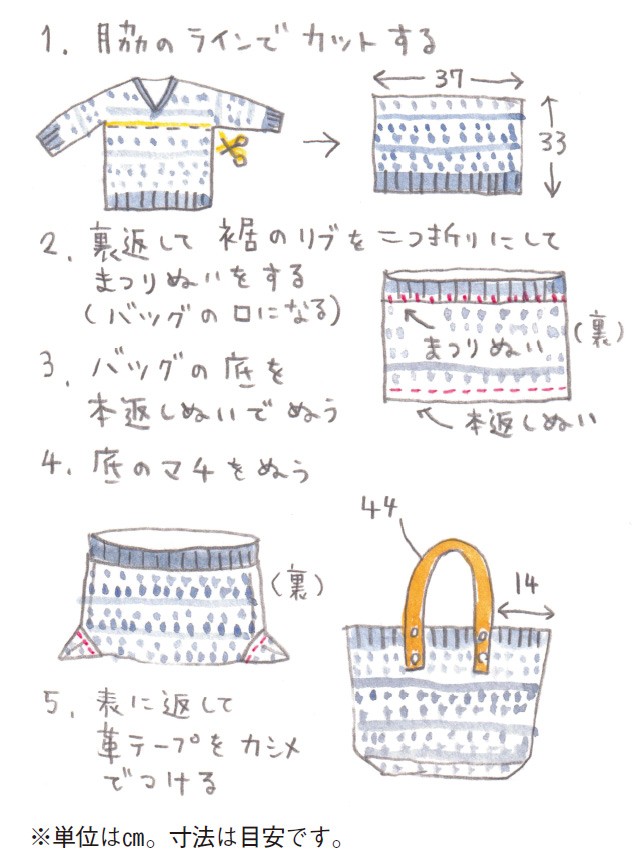 1. 脇のラインでカットする
37
33
2. 裏返して裾のリブを二つ折りにして
まつりぬいをする
(バッグの口になる)
(裏)
まつりぬい
3. バッグの底を
本返しぬいでぬう
本返しぬい
4. 底のマチをぬう
(裏)
44
14
5. 表に返して
革テープをカシメ
でつける
※単位は㎝。寸法は目安です。